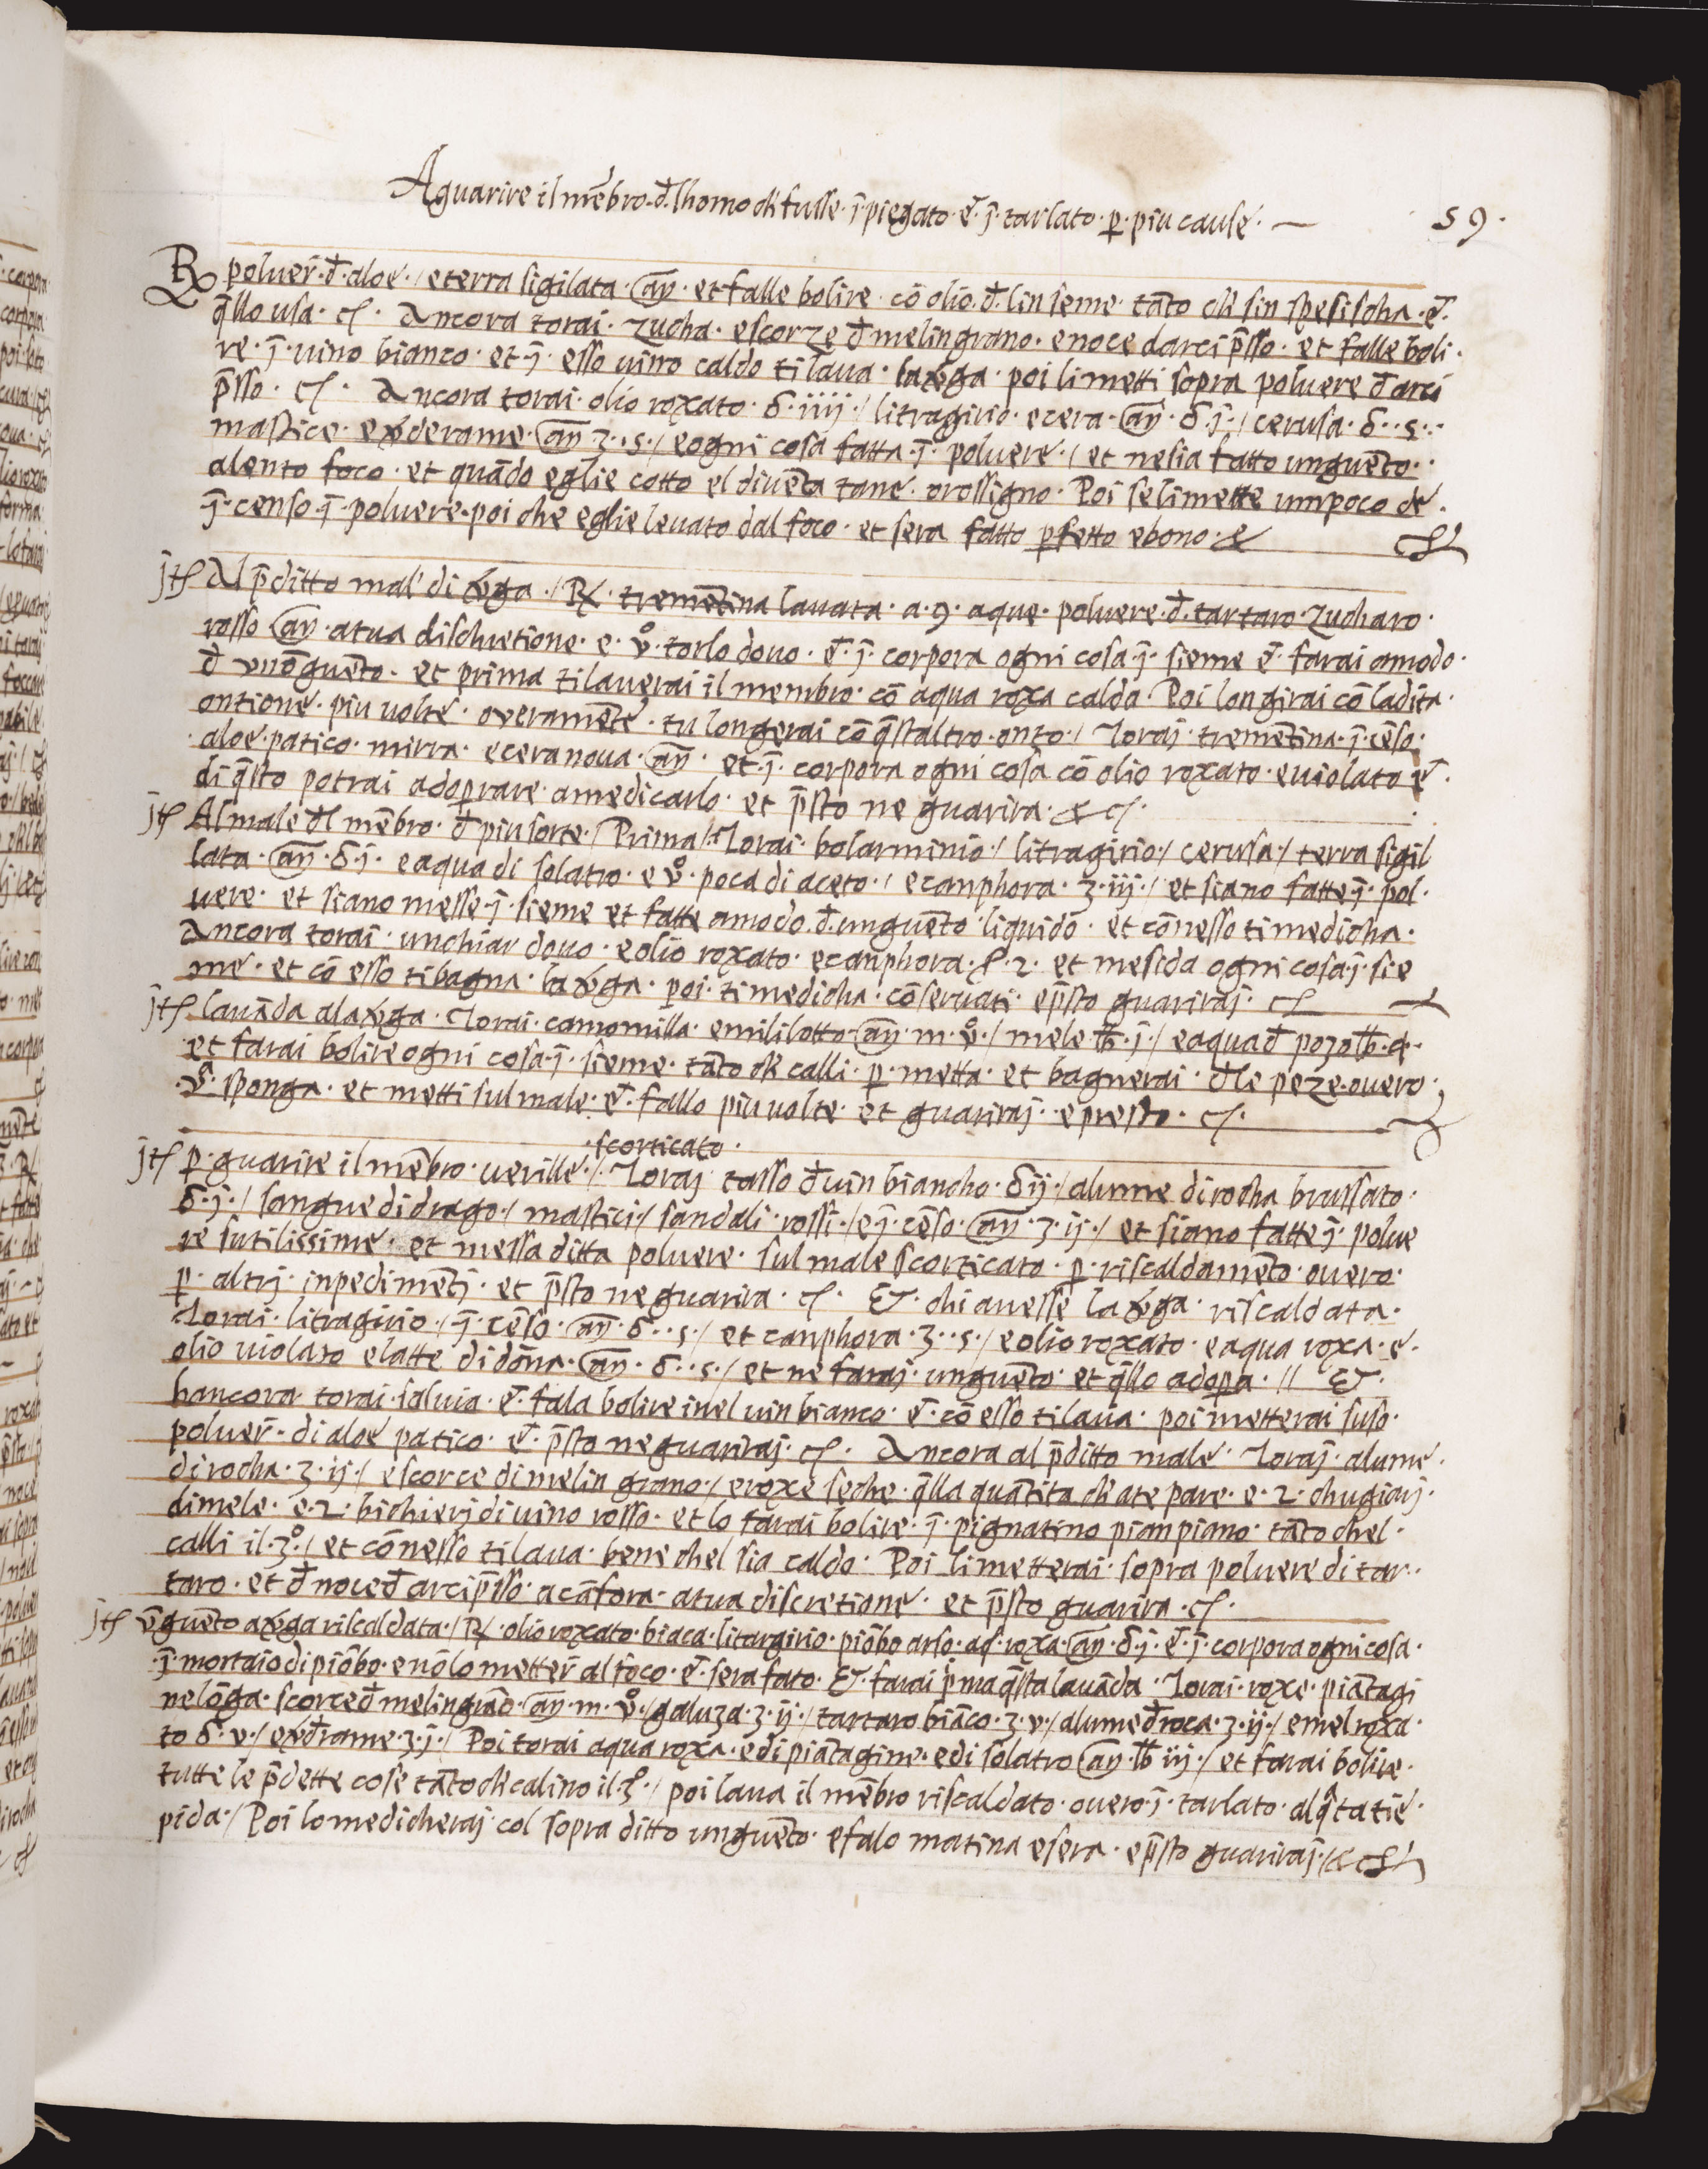 A guarire il mēbro. đ. lhomo ch̄ fusse. j̄. piegato. ē. j̄. tarlato. p̱. piu cause. —
59.
℞ poluer̄. đ. aloe. / e terra sigilata. añ. et falle bolire. cō olio. đ. lin seme. tāto ch̄ sin spesischa. ē.
q̄llo usa. Ancora torai. zucha. e scorze đ melingrano. e noce darcip̄sso. et falle boli.
re. j̄. uino bianco. et. j̄. esso uino caldo ti laua. la v̄ga. poi li metti sopra poluere đ arci
p̄sso. Ancora torai. olio roxato. δ. iiij. / litragirio. e cera. añ. δ. j. / cerusa. δ. . s. .
mastice. e v̄derame. añ ʒ. . s. / e ogni cosa fatta. j̄. poluere. / et ne sia fatto unguēto. .
a lento foco. et quādo eglie cotto el diuēta tane. o rossigno. Poi se li mette un poco de.
j̄. censo. j̄. poluere. poi che eglie leuato dal foco. et sera fatto p̱fetto e bono. &
jtƒ Al p̄ditto mal di v̄ga. / ℞. tremētina lauata. a. 9. aque. poluere. đ. tartaro. zucharo.
rosso añ. a tua dischretione. e. v̊. torlo douo. ē. j̄. corpora ogni cosa. j̄. sieme ē. farai amodo.
đ vnōguēto. et prima ti lauerai il membro. cō aqua roxa calda. Poi longirai cō la dita.
ontione. piu uolte. oueramēte. tu longerai cō q̄staltro. onto. / Toraj. tremētina. j̄. cēso.
aloe. patico. mirra. e cera noua. añ. et. j̄. corpora ogni cosa cō olio roxato. e uiolato ē.
di q̄sto potrai adop̱rare. a medicarlo. et p̄sto ne guarira. &
jtƒ Al male đl mēbro. đ piu sorte. / Prima /. Torai. bolarminio. / litragirio. / cerusa. / terra sigil
lata. añ. δ. j. e aqua di solatro. e v̊. poca di aceto. / e canphora. ʒ. iij. / et siano fatte j̄. pol.
uere. et siano messe. j̄. sieme et fatte amodo. đ. unguēto liquido. et cōnesso ti medicha.
Ancora torai. un chiar douo. e olio roxato. e canphora. . 2. et mesida ogni cosa. j̄. sie
me. et cō esso ti bagna. la v̄ga. poi. ti medicha. cōseruati. e p̄sto guariraj.
jtƒ lauāda ala v̄ga. Torai. camomilla. e mililotto. añ. m. v̊. / mele ℔. j. / e aqua đ pozo ℔. 4.
et farai bolire ogni cosa. j̄. sieme. tāto ch̄ calli. p̱. metta. et bagnerai. đle peze. ouero.
v̄. sponga. et metti sul male. ē. fallo piu uolte. et guariraj. e presto.
. scorticato.
jtƒ p̱. guarire il mēbro. uerille. /. Toraj tasso đ uin biancho. δ ij. / alume di rocha brussato.
δ. j. / sangue di drago. / mastici. / sandali. rossi. / e j̄. cēso. añ. ʒ. ij. / et siano fatte j̄. polue
re sutilissime. et messa ditta poluere. sul male scorticato. p̱. riscaldamēto. ouero.
p̱. altrj. inpedimētj. et p̄sto ne guarira. Et. chi auesse la v̄ga. riscaldata.
Torai. litragirio. / j̄. cēso. añ. δ. . s. / et canphora. ʒ. . s. / e olio roxato. e aqua roxa. e.
olio uiolato e latte di dōna. añ. δ. . s. / et ne faraj. unguēto. et q̄llo adop̱a. // Et.
hancora torai. saluia. ē. fala bolire inel uin bianco. ē. cō esso ti laua. poi metterai suso.
poluer̄. di aloe patico. ē. p̄sto ne guariraj. Ancora al p̄ditto male. Toraj. alume.
di rocha. ʒ. ij. / e scorce di melin grano. / e roxe seche. q̄lla quātita ch̄ ate pare. e. 2. chugiarj.
di mele. e. 2. bichierj di uino rosso. et lo farai bolire. j̄. pignatino pian piano. tāto chel.
calli il. 3°. / et cōnesso ti laua. bene chel sia caldo. Poi li metterai. sopra poluere di tar.
taro. et đ noce đ arcip̄sso. a cāfora. a tua discretione. et p̄sto guarira.
jtƒ v̄guēto a v̄ga riscaldata. / ℞. olio roxato. biaca. litargirio. piōbo arso. aq̄. roxa. añ. δ. j. ē. j̄. corpora ogni cosa.
j̄. mortaio di piōbo. e nō lo metter̄ al foco. ē. sera fato. Et. farai p̄ma q̄sta lauāda. Torai. roxe. piātagi
ne lōga. scorce đ melingrāo. añ. m. v̊. / galuza. ʒ. ij. / tartaro biāco. ʒ. v. / alume đ roca. ʒ. ij. / e mel roxa.
to δ. v. / e v̄đrame. ʒ. j. / Poi torai aqua roxa. e di piātagine. e di solatro añ. ℔ iij. / et farai bolire.
tutte le p̄dette cose tāto ch̄ calino il. 3°. / poi laua il mēbro riscaldato. ouero. j̄. tarlato. al q̄ta tie.
pida. / Poi lo medicheraj. col sopra ditto unguēto. e falo matina e sera. e p̄sto guariraj. / &